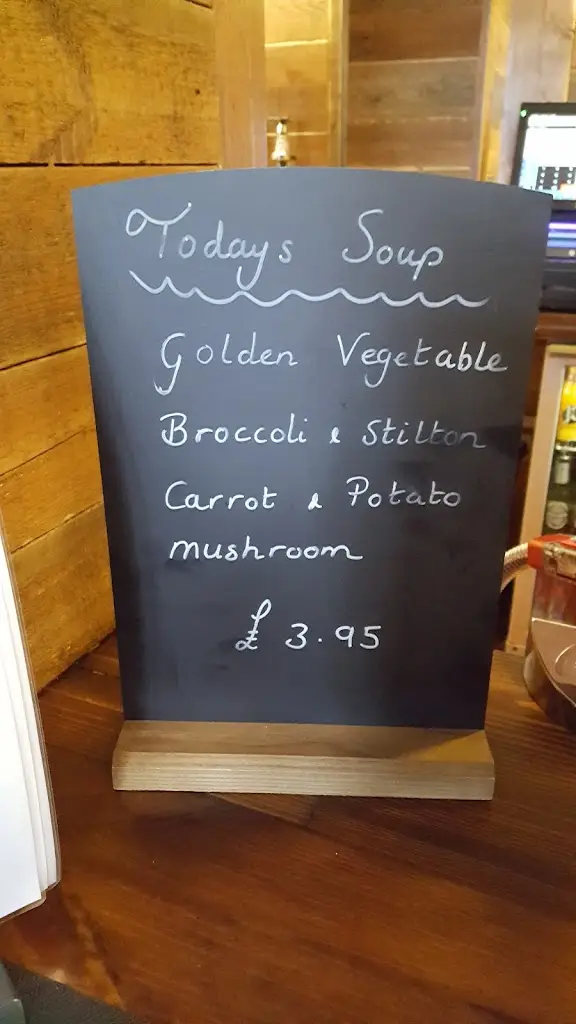 Todays Soup
Golden Vegetable
Broccoli & Stilton
Carrot & Potato
mushroom
£ 3.95